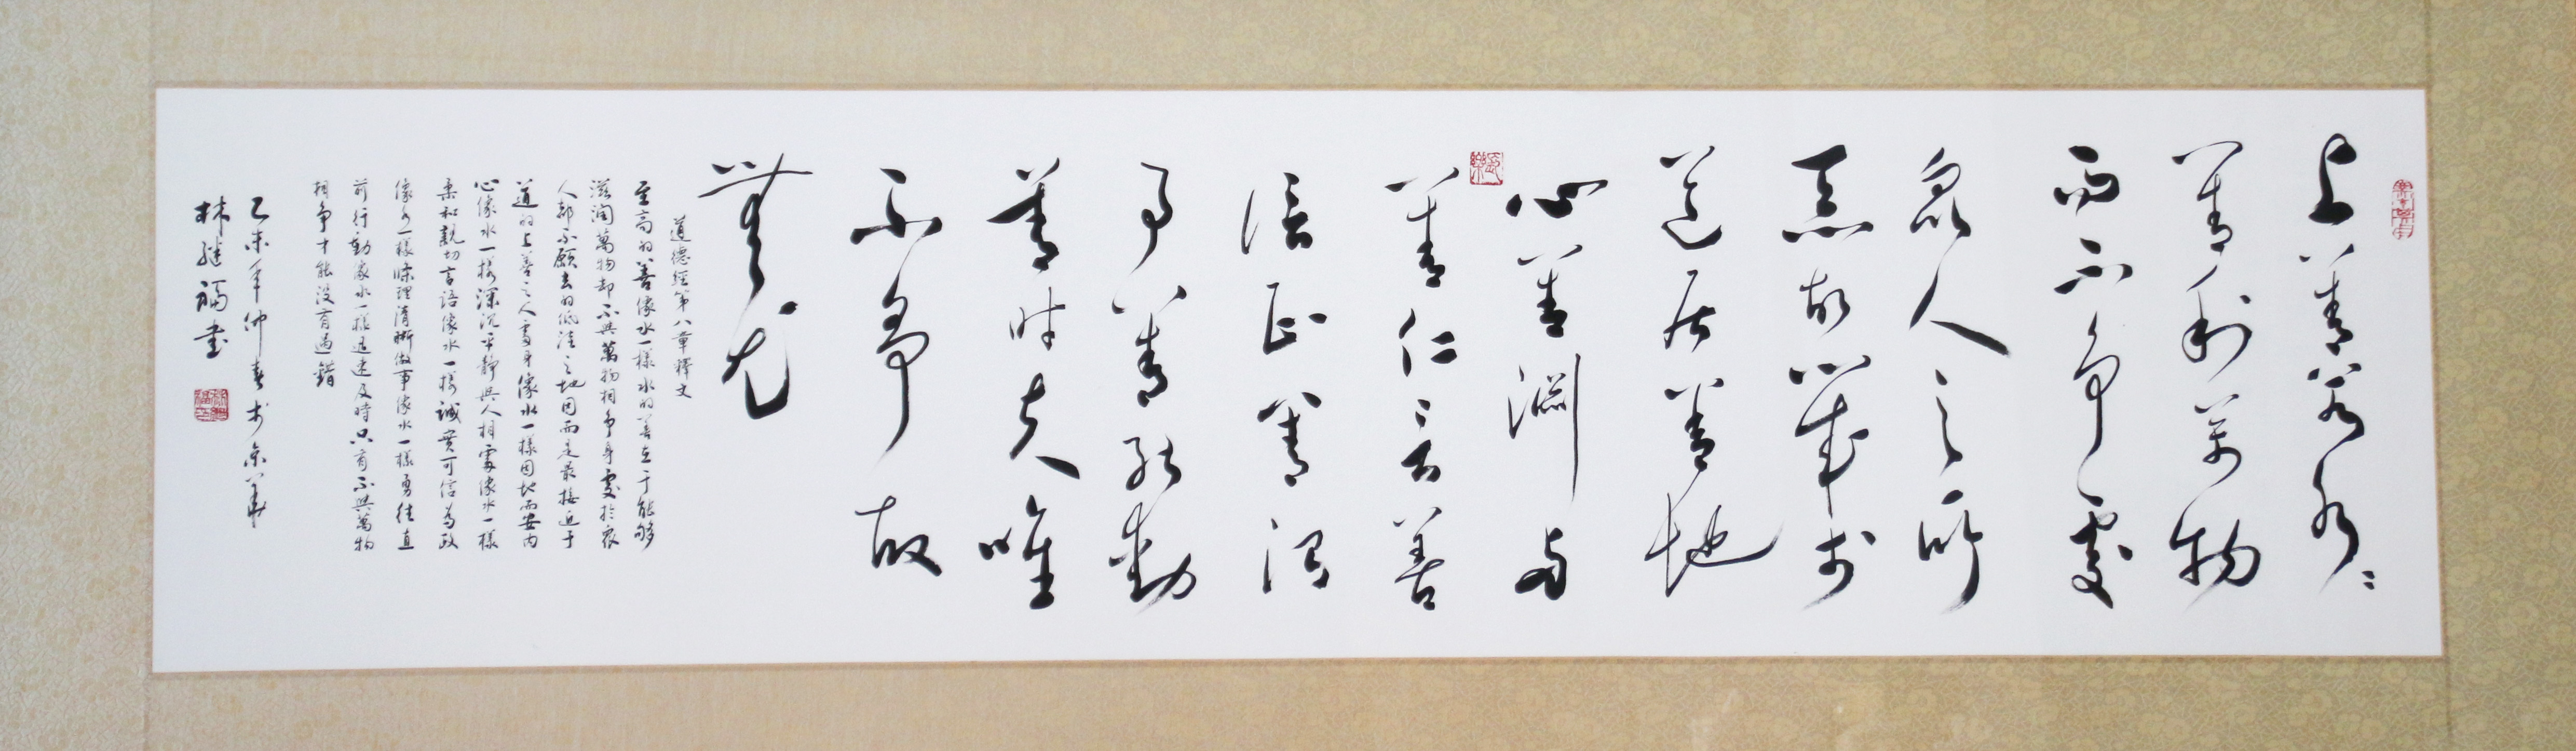 上善若水〻
善利萬物
而不争處
衆人之所
惡故幾於
道居善地
心善淵与
善仁言善
信正善治
事善能動
善时夫唯
不争故
無尤
道德經第八章釋文
至高的善像水一樣水的善在于能够
滋润萬物却不與萬物相争身處於衆
人都不願去的低洼之地因而是最接近于
道的上善之人處身像水一樣因地而安内
心像水一樣深沉平靜與人相處像水一樣
柔和親切言語像水一樣誠實可信為政
像水一樣條理清晰做事像水一樣勇往直
前行動像水一樣迅速及時只有不與萬物
相争才能没有過錯
乙未年仲春於京華
林继福書